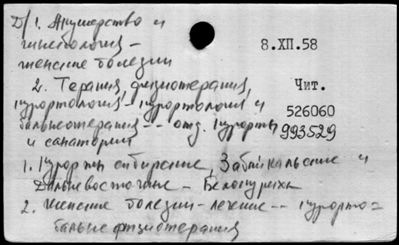 Д/ 1. Акушерство и
гинекология –
женские болезни
8.XП.58
2. Терапия, физиотерапия,
Чит.
курортология – курортология и
526060
бальнеотерапия -- отд. курорты
993529
и санатории
1. Курорты сибирские, Забайкальские и
Дальневосточные – Белокуриха
2. Женские болезни – лечение -- курорто=
бальнефизиотерапия